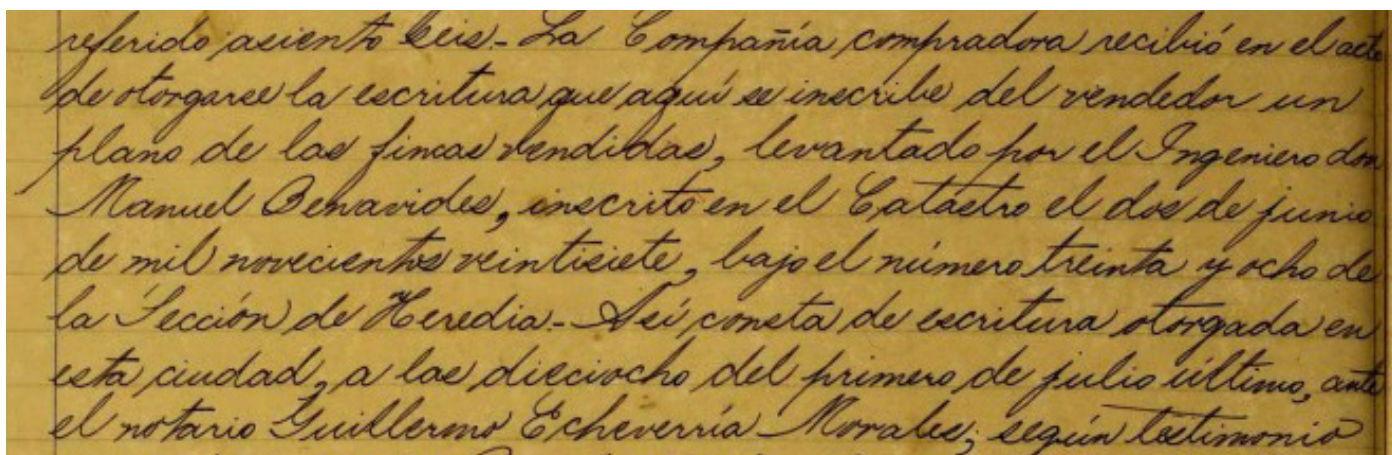 referido asiento seis - La Compañía compradora recibió en el acto
de otorgarse la escritura que aquí se inscribe del vendedor un
plano de las fincas vendidas, levantado por el Ingeniero don
Manuel Benavides, inscrito en el Catastro el dos de junio
de mil novecientos veintisiete, bajo el número treinta y ocho de
la Sección de Heredia - Así consta de escritura otorgada en
esta ciudad, a las dieciocho del primero de julio último, ante
el notario Guillermo Echeverría Morales; según testimonio